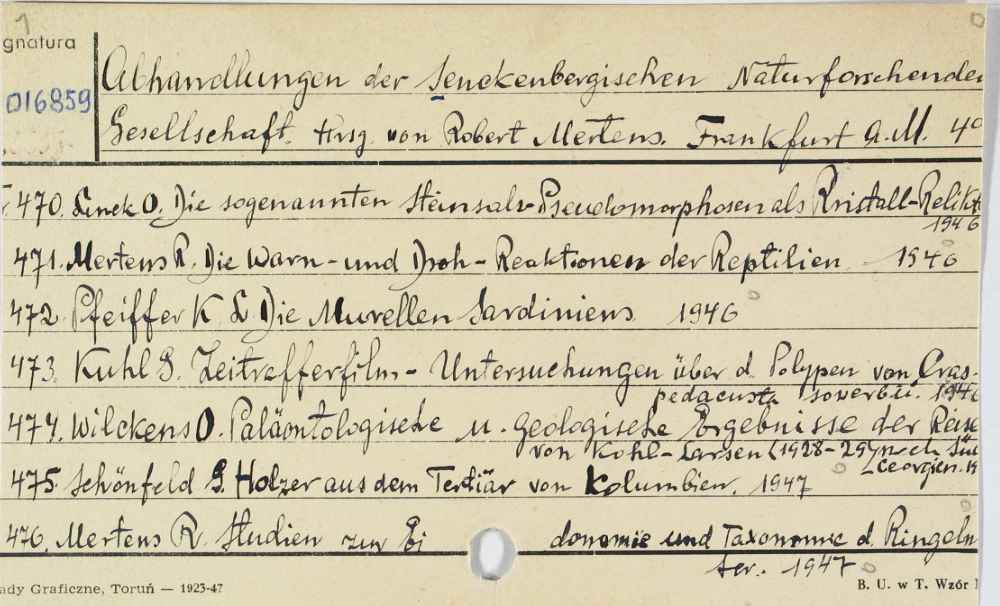 1
gnatura
016859
Abhandlungen der Senckenbergischen Naturforschenden
Gesellschaft. Hrsg. von Robert Mertens. Frankfurt a.M. 4º
470. Linck O. Die sogenannten Steinsalz-Pseudomorphosen als Kristall-Relikte
1946
471. Mertens R. Die Warn- und Droh-Reaktionen der Reptilien 1946
472. Pfeiffer K. L. Die Murellen Sardiniens 1946
473. Kuhl G. Zeitrafferfilm-Untersuchungen über d. Polypen von Cras-
pedacusta sowerbii. 1946
474. Wilckens O. Paläontologische u. Geologische Ergebnisse der Reise
von Kohl-Larsen (1928-29) nach Süd
Georgien. 19
475. Schönfeld G. Hölzer aus dem Tertiär von Kolumbien. 1947
476. Mertens R. Studien zur Ei donomie und Taxonomie d. Ringeln
ter. 1947
ady Graficzne, Toruń — 1923-47
B. U. w T. Wzór